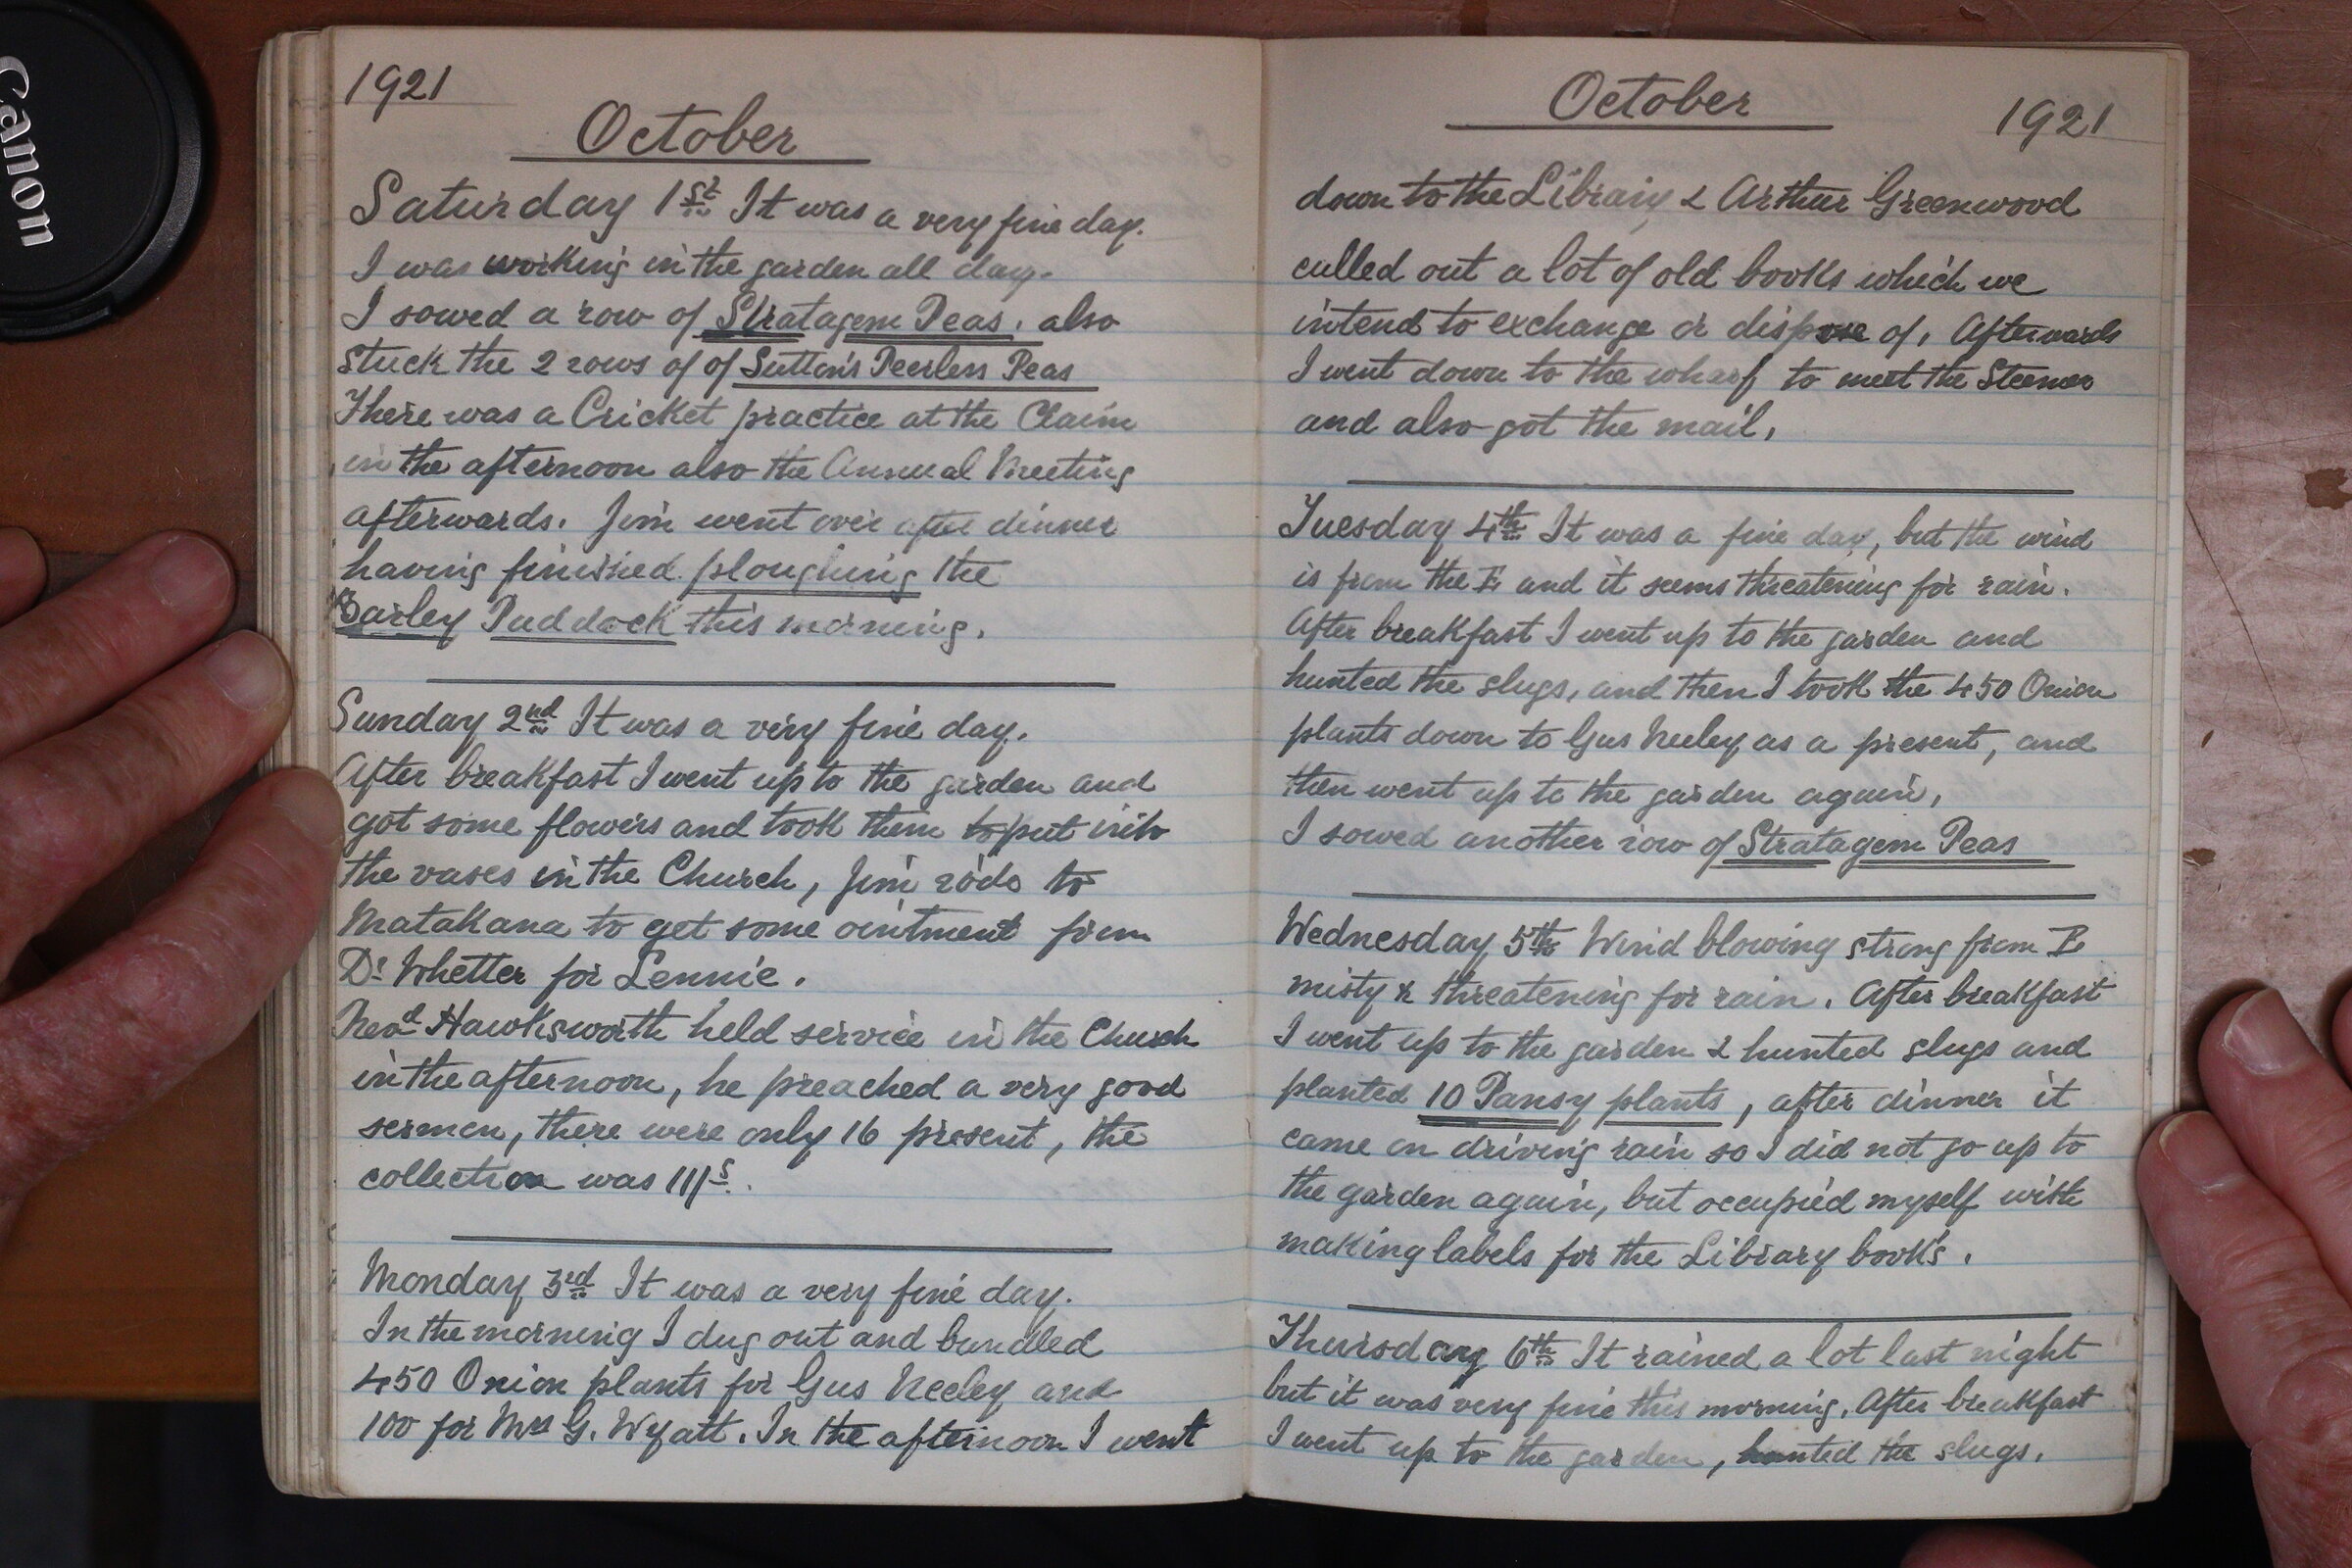 Canon
1921
October
Saturday 1st It was a very fine day.
I was working in the garden all day.
I sowed a row of Stratagem Peas. also
stuck the 2 rows of of Sutton's Peerless Peas
There was a Cricket practice at the Claim
in the afternoon also the Annual Meeting
afterwards. Jim went over after dinner
having finished ploughing the
Barley Paddock this morning.
Sunday 2nd It was a very fine day.
After breakfast I went up to the garden and
got some flowers and took them to put into
the vases in the Church, Jim rode to
Matakana to get some ointment from
Dr Whetter for Lennie.
Revd Hawksworth held service in the Church
in the afternoon, he preached a very good
sermon, there were only 16 present, the
collection was 11/s.
Monday 3rd It was a very fine day.
In the morning I dug out and bundled
450 Onion plants for Gus Neeley and
100 for Mrs G. Wyatt. In the afternoon I went
October
1921
down to the Library & Arthur Greenwood
culled out a lot of old books which we
intend to exchange or dispose of, Afterwards
I went down to the wharf to meet the Steemer
and also got the mail,
Tuesday 4th It was a fine day, but the wind
is from the E and it seems threatening for rain.
After breakfast I went up to the garden and
hunted the slugs, and then I took the 450 Onion
plants down to Gus Neeley as a present, and
then went up to the garden again,
I sowed another row of Stratagem Peas
Wednesday 5th Wind blowing strong from E
misty & threatening for rain. After breakfast
I went up to the garden & hunted slugs and
planted 10 Pansy plants, after dinner it
came on driving rain so I did not go up to
the garden again, but occupied myself with
making labels for the Library books.
Thursday 6th It rained a lot last night
but it was very fine this morning. After breakfast
I went up to the garden, hunted the slugs.